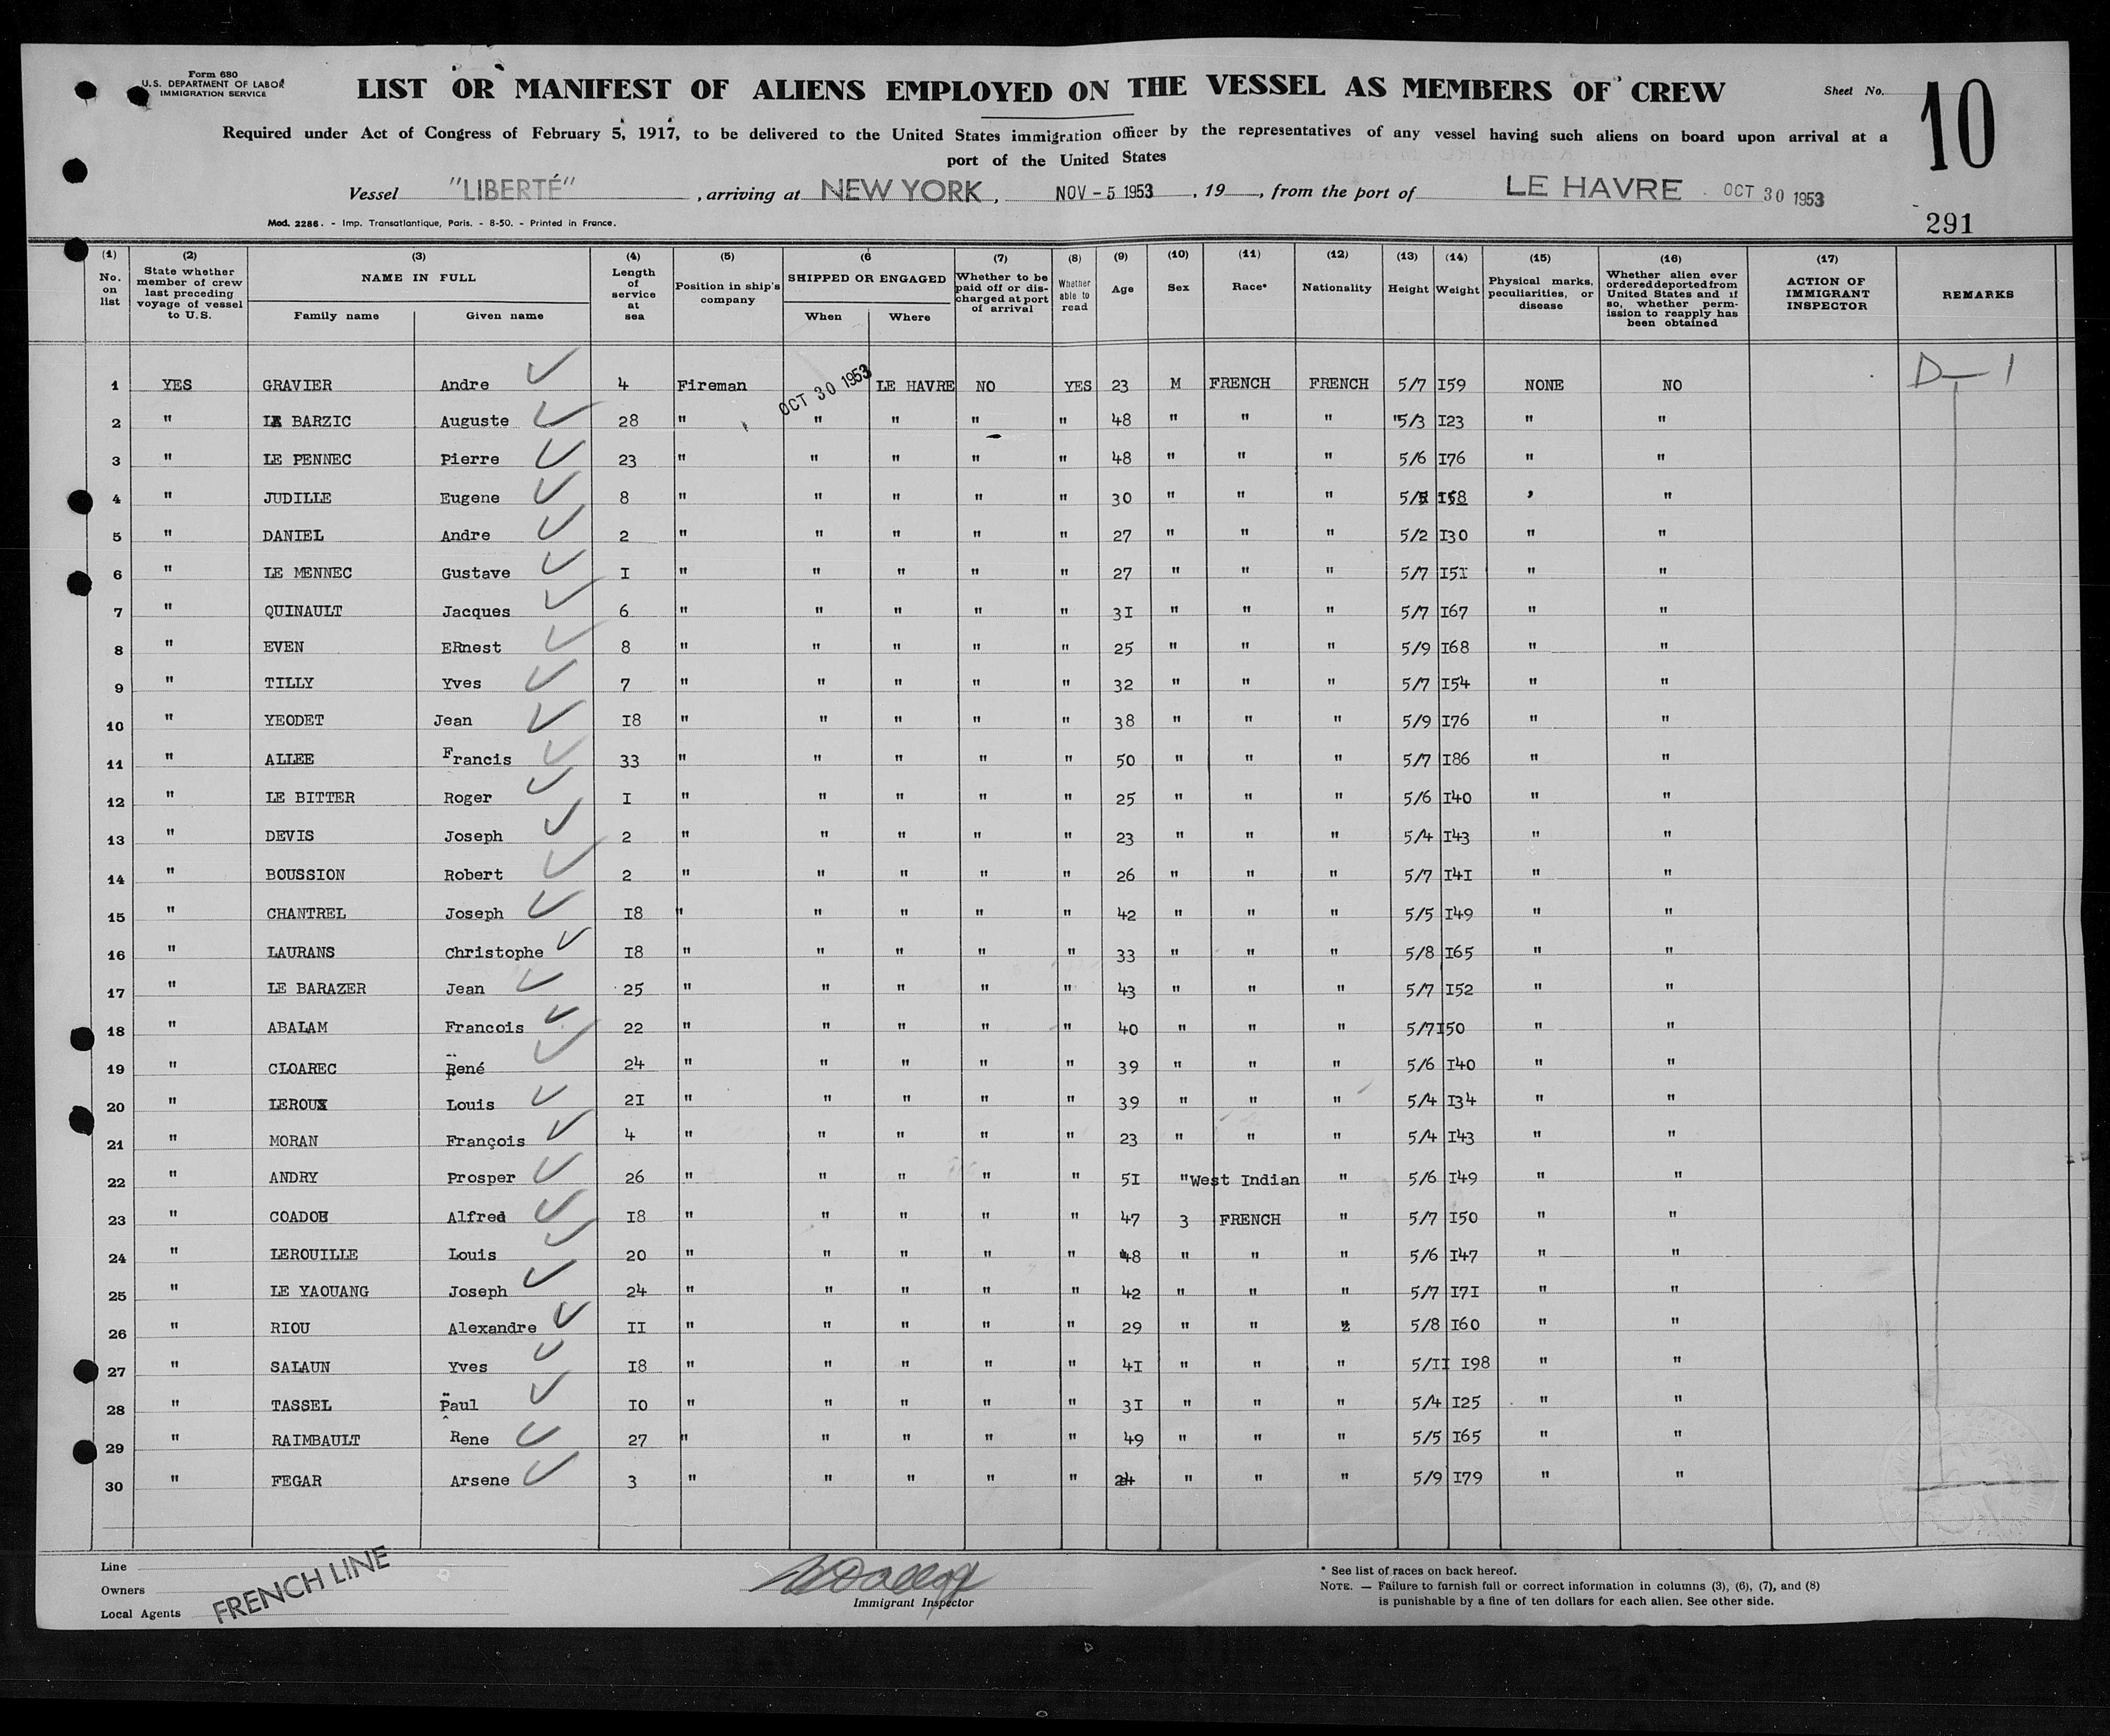 Form 680
U.S. DEPARTMENT OF LABOR
IMMIGRATION SERVICE
LIST OR MANIFEST OF ALIENS EMPLOYED ON THE VESSEL AS MEMBERS OF CREW
Sheet No. 10
Required under Act of Congress of February 5, 1917, to be delivered to the United States immigration officer by the representatives of any vessel having such aliens on board upon arrival at a
port of the United States
Vessel "LIBERTÉ", arriving at NEW YORK, NOV - 5 1953, 19, from the port of LE HAVRE OCT 30 1953
Mod. 2286. - Imp. Transatlantique, Paris. - 8-50. - Printed in France.
291
(1) No. on list (2) State whether member of crew last preceding voyage of vessel to U.S. (3) NAME IN FULL Family name Given name (4) Length of service at sea (5) Position in ship's company (6 SHIPPED OR ENGAGED When Where (7) Whether to be paid off or discharged at port of arrival (8) Whether able to read (9) Age (10) Sex (11) Race* (12) Nationality (13) Height (14) Weight (15) Physical marks, peculiarities, or disease (16) Whether alien ever ordered deported from United States and if so, whether permission to reapply has been obtained (17) ACTION OF IMMIGRANT INSPECTOR REMARKS
1 YES GRAVIER Andre 4 Fireman OCT 30 1953 LE HAVRE NO YES 23 M FRENCH FRENCH 5/7 I59 NONE NO D-1
2 " LE BARZIC Auguste 28 " " " " " 48 " " " "5/3 I23 " "
3 " LE PENNEC Pierre 23 " " " " " 48 " " " 5/6 I76 " "
4 " JUDILLE Eugene 8 " " " " " 30 " " " 5/5 I58 ' "
5 " DANIEL Andre 2 " " " " " 27 " " " 5/2 I30 " "
6 " LE MENNEC Gustave I " " " " " 27 " " " 5/7 I5I " "
7 " QUINAULT Jacques 6 " " " " " 3I " " " 5/7 I67 " "
8 " EVEN ERnest 8 " " " " " 25 " " " 5/9 I68 " "
9 " TILLY Yves 7 " " " " " 32 " " " 5/7 I54 " "
10 " YEODET Jean I8 " " " " " 38 " " " 5/9 I76 " "
11 " ALLEE Francis 33 " " " " " 50 " " " 5/7 I86 " "
12 " LE BITTER Roger I " " " " " 25 " " " 5/6 I40 " "
13 " DEVIS Joseph 2 " " " " " 23 " " " 5/4 I43 " "
14 " BOUSSION Robert 2 " " " " " 26 " " " 5/7 I4I " "
15 " CHANTREL Joseph I8 " " " " " 42 " " " 5/5 I49 " "
16 " LAURANS Christophe I8 " " " " " 33 " " " 5/8 I65 " "
17 " LE BARAZER Jean 25 " " " " " 43 " " " 5/7 I52 " "
18 " ABALAM Francois 22 " " " " " 40 " " " 5/7I50 " "
19 " CLOAREC René 24 " " " " " 39 " " " 5/6 I40 " "
20 " LEROUX Louis 2I " " " " " 39 " " " 5/4 I34 " "
21 " MORAN François 4 " " " " " 23 " " " 5/4 I43 " "
22 " ANDRY Prosper 26 " " " " " 5I " West Indian " 5/6 I49 " "
23 " COADOH Alfred I8 " " " " " 47 3 FRENCH " 5/7 I50 " "
24 " LEROUILLE Louis 20 " " " " " 48 " " " 5/6 I47 " "
25 " LE YAOUANG Joseph 24 " " " " " 42 " " " 5/7 I7I " "
26 " RIOU Alexandre II " " " " " 29 " " " 5/8 I60 " "
27 " SALAUN Yves I8 " " " " " 4I " " " 5/II I98 " "
28 " TASSEL Paul I0 " " " " " 3I " " " 5/4 I25 " "
29 " RAIMBAULT Rene 27 " " " " " 49 " " " 5/5 I65 " "
30 " FEGAR Arsene 3 " " " " " 24 " " " 5/9 I79 " "
Line
Owners
Local Agents
FRENCH LINE
Immigrant Inspector
* See list of races on back hereof.
NOTE. — Failure to furnish full or correct information in columns (3), (6), (7), and (8)
is punishable by a fine of ten dollars for each alien. See other side.